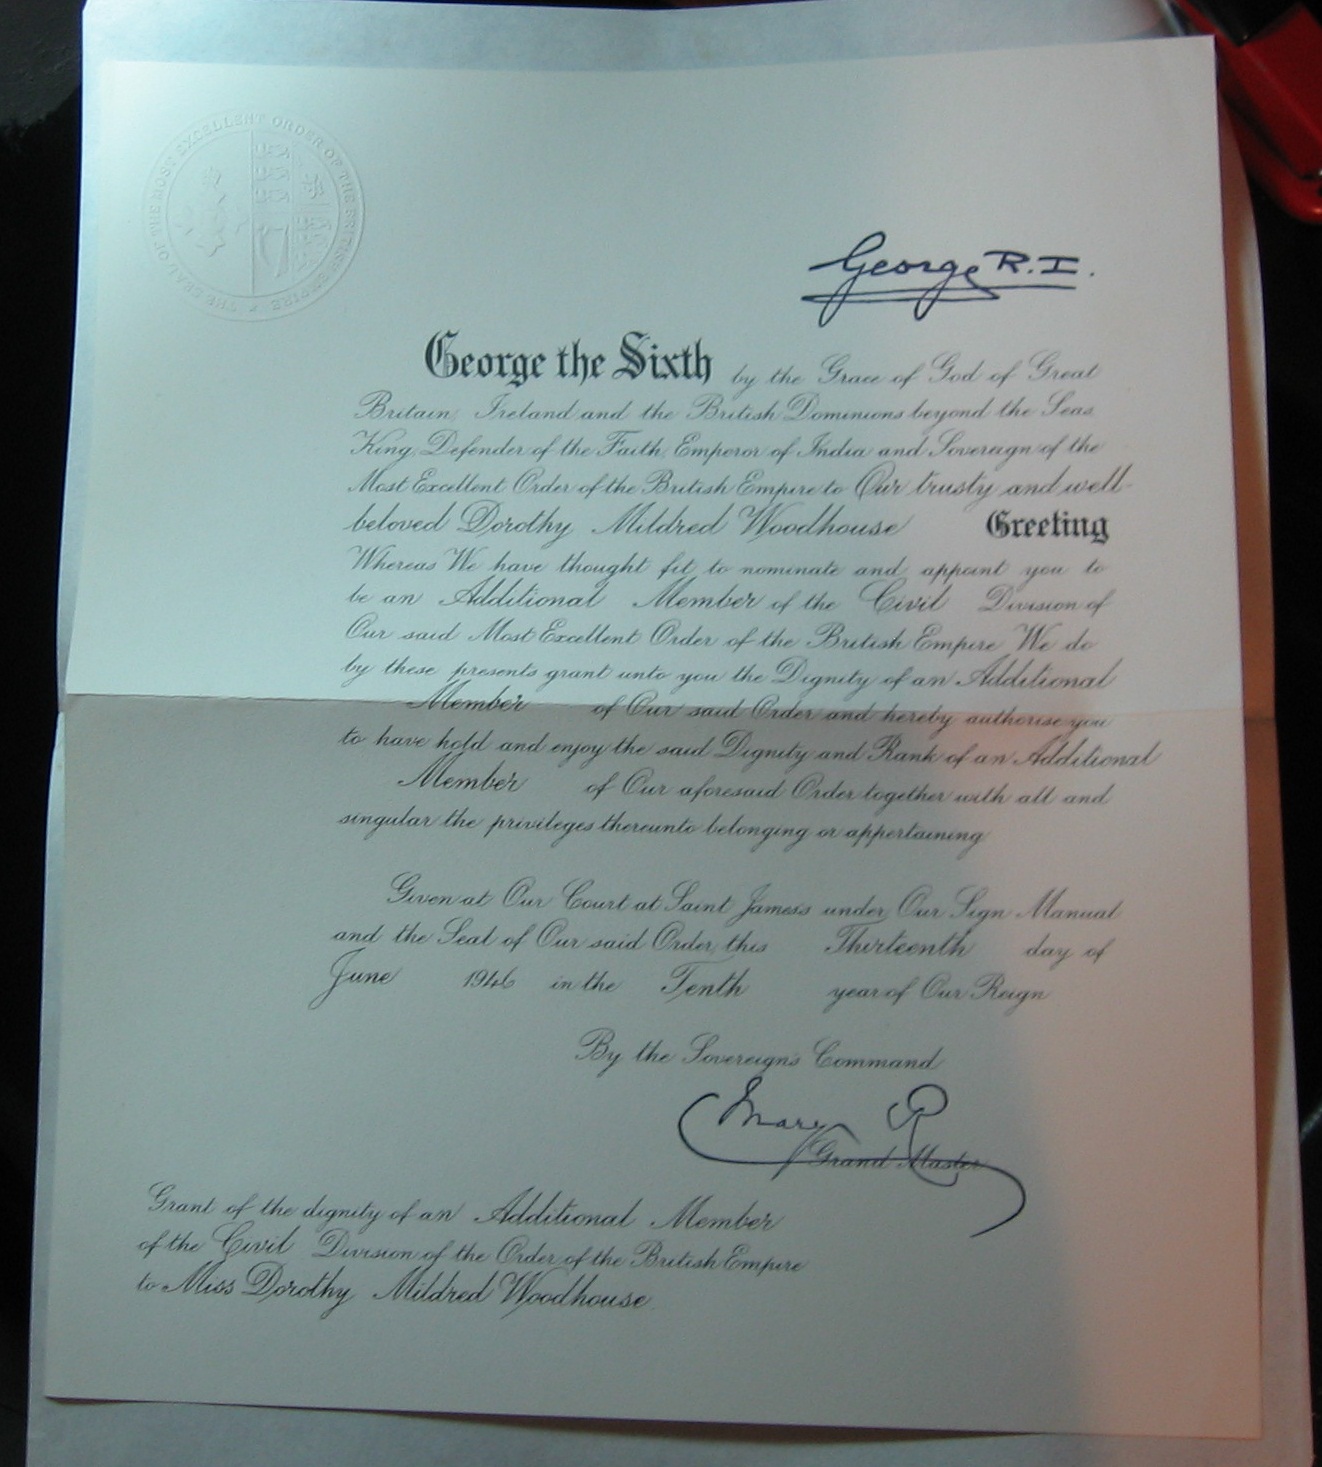 THE SEAL OF THE MOST EXCELLENT ORDER OF THE BRITISH EMPIRE
George R.I.
George the Sixth by the Grace of God of Great
Britain, Ireland and the British Dominions beyond the Seas
King, Defender of the Faith, Emperor of India and Sovereign of the
Most Excellent Order of the British Empire to Our trusty and well-
beloved Dorothy Mildred Woodhouse Greeting
Whereas We have thought fit to nominate and appoint you to
be an Additional Member of the Civil Division of
Our said Most Excellent Order of the British Empire We do
by these presents grant unto you the Dignity of an Additional
Member of Our said Order and hereby authorise you
to have hold and enjoy the said Dignity and Rank of an Additional
Member of Our aforesaid Order together with all and
singular the privileges thereunto belonging or appertaining
Given at Our Court at Saint James's under Our Sign Manual
and the Seal of Our said Order this Thirteenth day of
June 1946 in the Tenth year of Our Reign
By the Sovereign's Command
Mary R
Grand Master
Grant of the dignity of an Additional Member
of the Civil Division of the Order of the British Empire
to Miss Dorothy Mildred Woodhouse